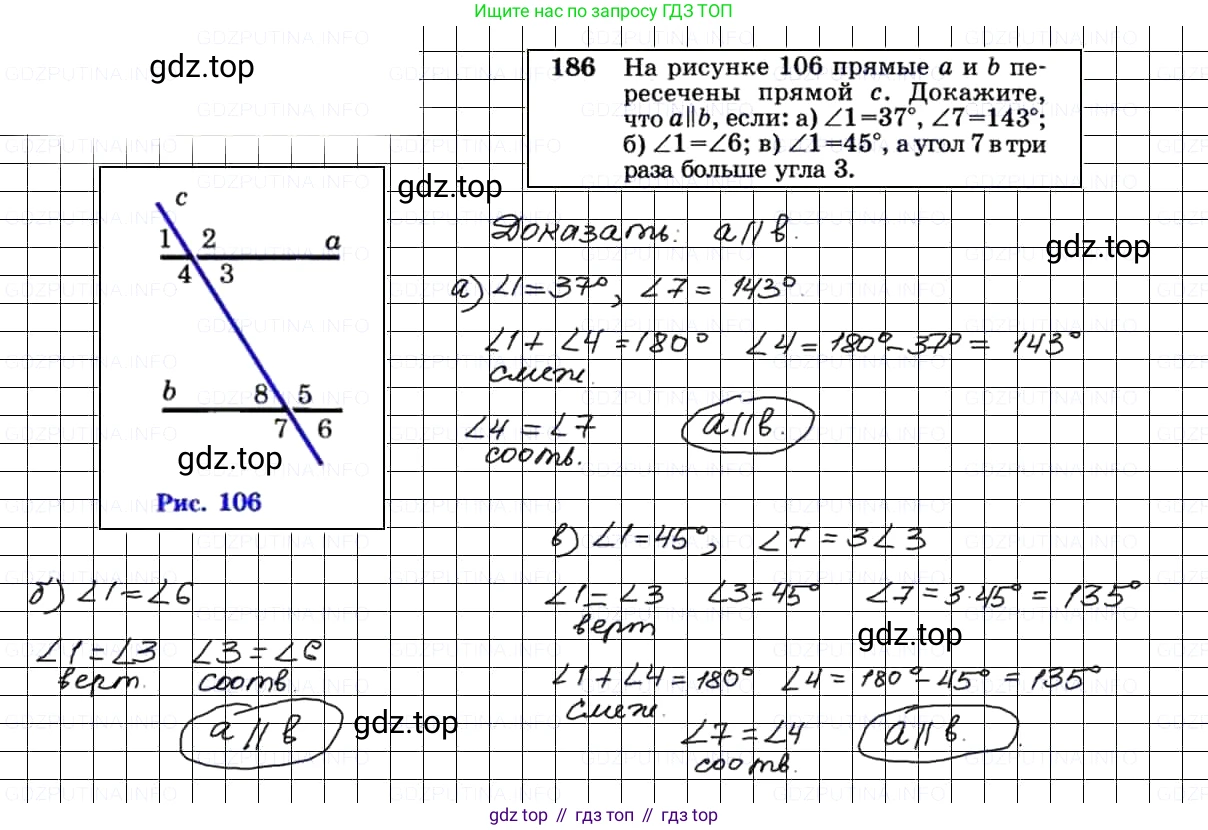 Ищите нас по запросу ГДЗ ТОП
gdz.top
186 На рисунке 106 прямые a и b пе-
ресечены прямой c. Докажите,
что a∥b, если: а) ∠1=37°, ∠7=143°;
б) ∠1=∠6; в) ∠1=45°, а угол 7 в три
раза больше угла 3.
gdz.top
c
1 2 a
4 3
b 8 5
7 6
gdz.top
Рис. 106
Доказать: a∥b.
gdz.top
а) ∠1=37°, ∠7= 143°.
∠1+ ∠4=180° ∠4=180°-37°= 143°
смеж.
∠4=∠7 a∥b.
соотв.
б) ∠1=∠6
∠1=∠3 ∠3=∠6
верт. соотв.
a∥b
gdz.top
в) ∠1=45°, ∠7=3∠3
∠1=∠3 ∠3=45° ∠7=3·45°=135°
верт
gdz.top
∠1+∠4=180° ∠4= 180°-45°=135°
смеж.
∠7=∠4 a∥b.
соотв.
GDZPUTINA.INFO
gdz top // гдз топ // gdz.top